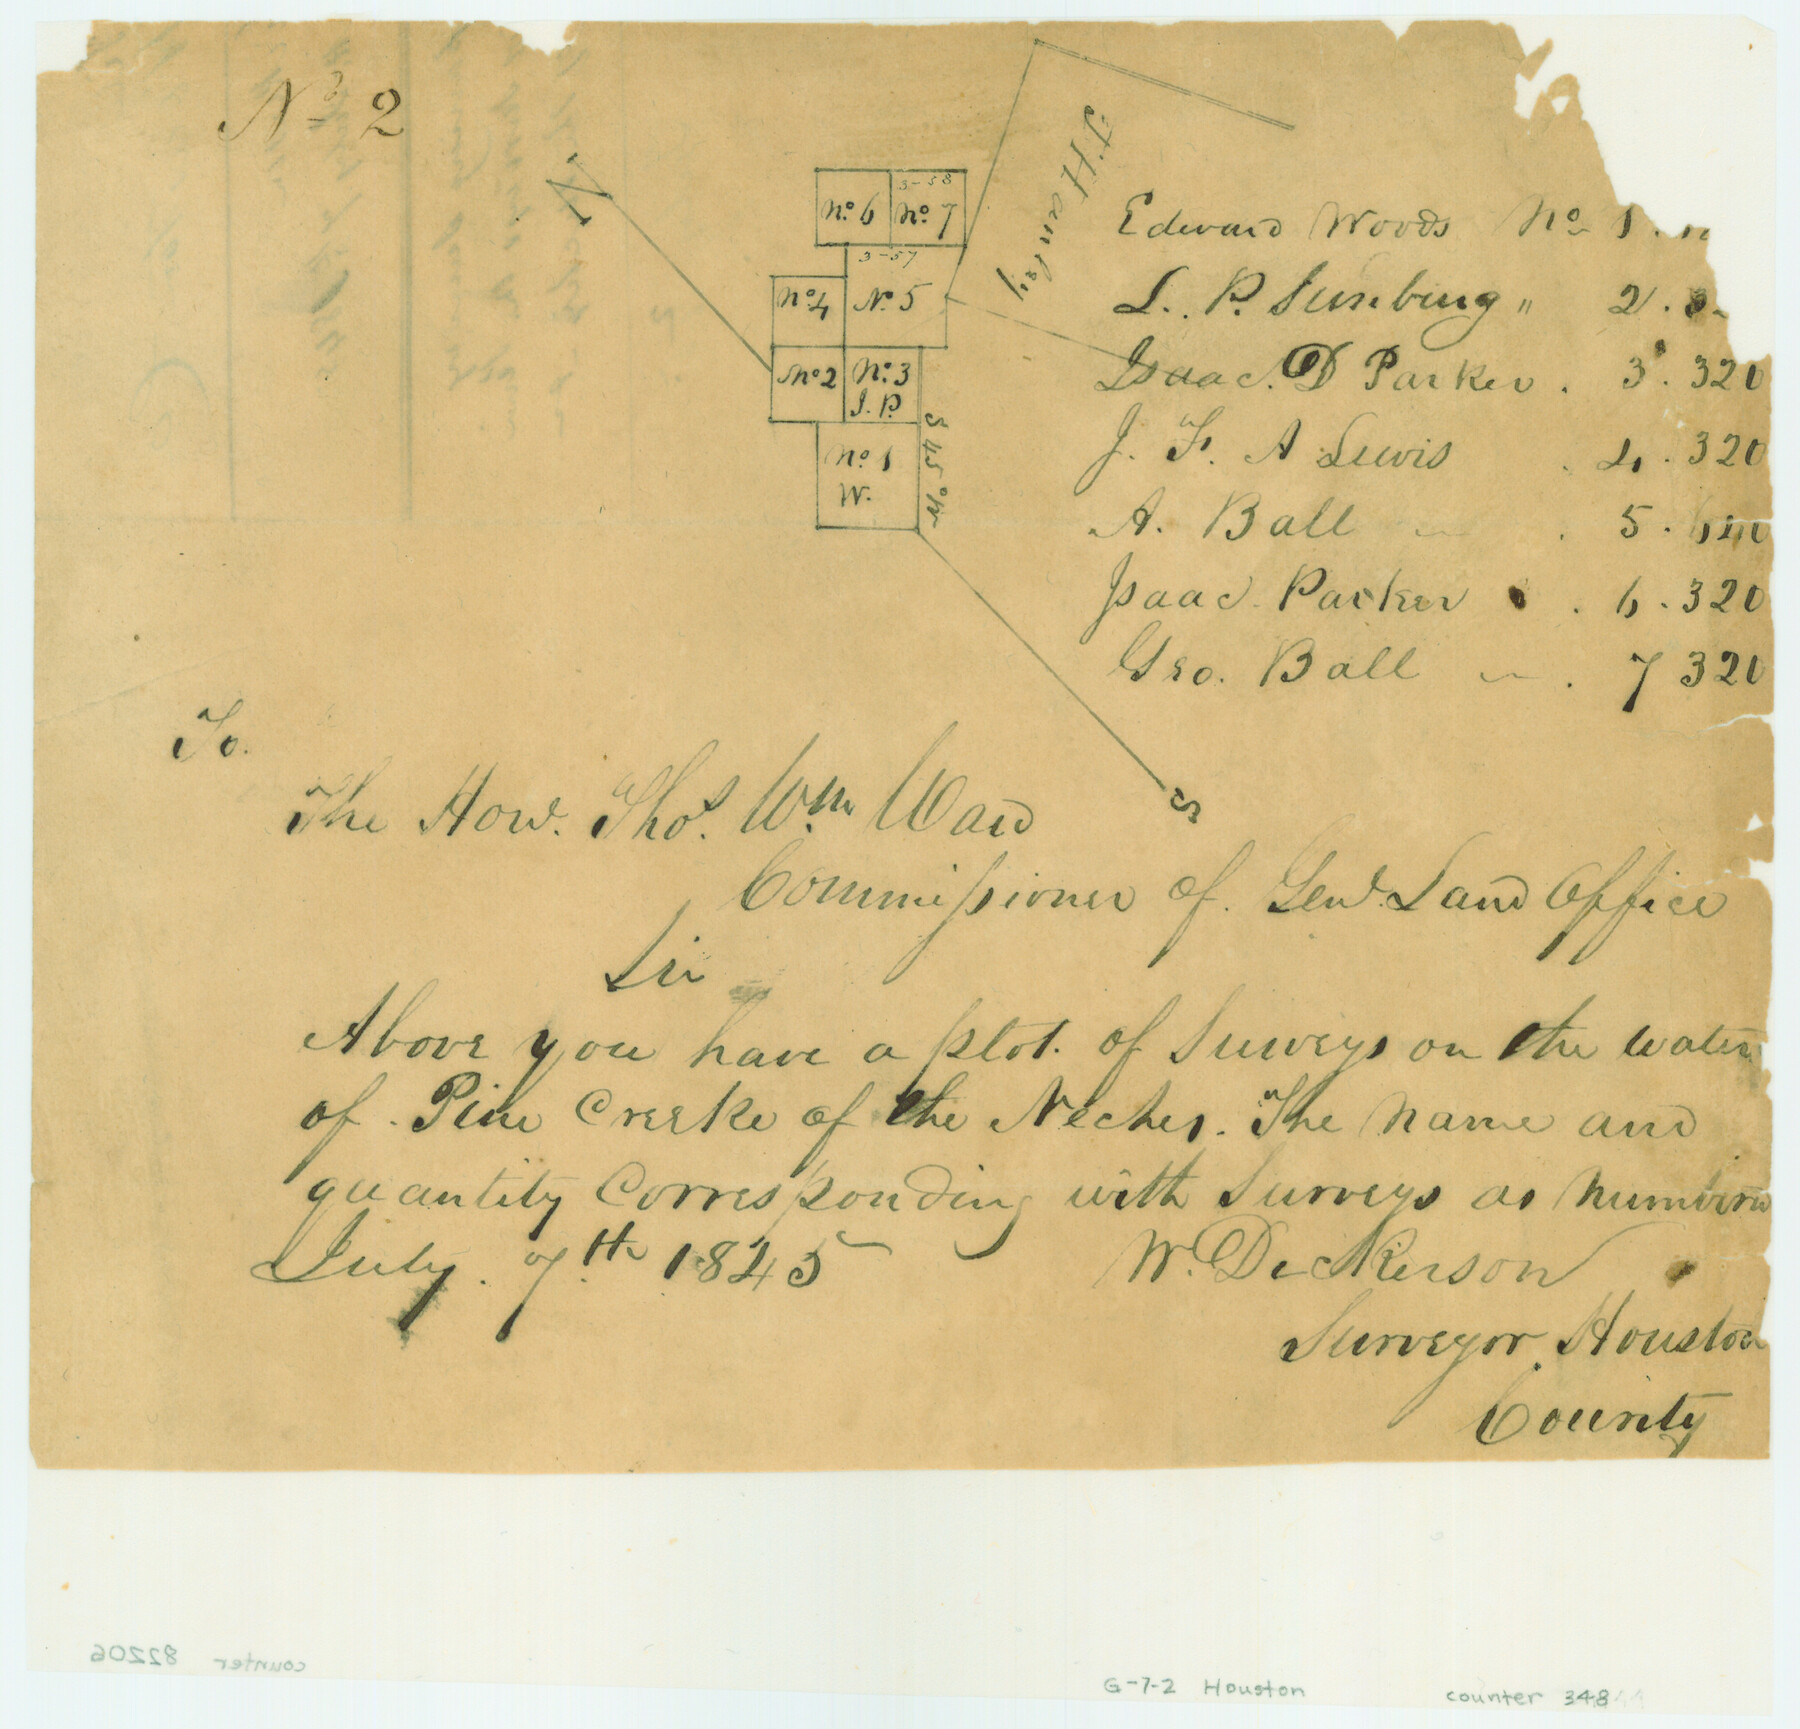 No 2
N
No. 6
3-58
No. 7
3-57
No. 4
No. 5
No 2
No. 3
I. P.
No. 1
W.
S 45° W
S
J. Hanley
Edward Woods No 1.
L. P. " 2.
Isaac. D Parker. 3. 320
J. F. A Lewis . 4. 320
A. Ball . 5.
Isaac. Parker . 6. 320
Geo. Ball . 7 320
To.
The Hon. Thos. Wm. Ward
Commissioner of. Genl. Land Office
Sir
Above you have a plot. of Surveys on the water
of. Pine Creeke of the Neches. The Name and
quantity Corresponding with Surveys as
July. 7th 1845 W. Dickerson
Surveyor. Houston
County
82206 counter
G-7-2 Houston counter 348